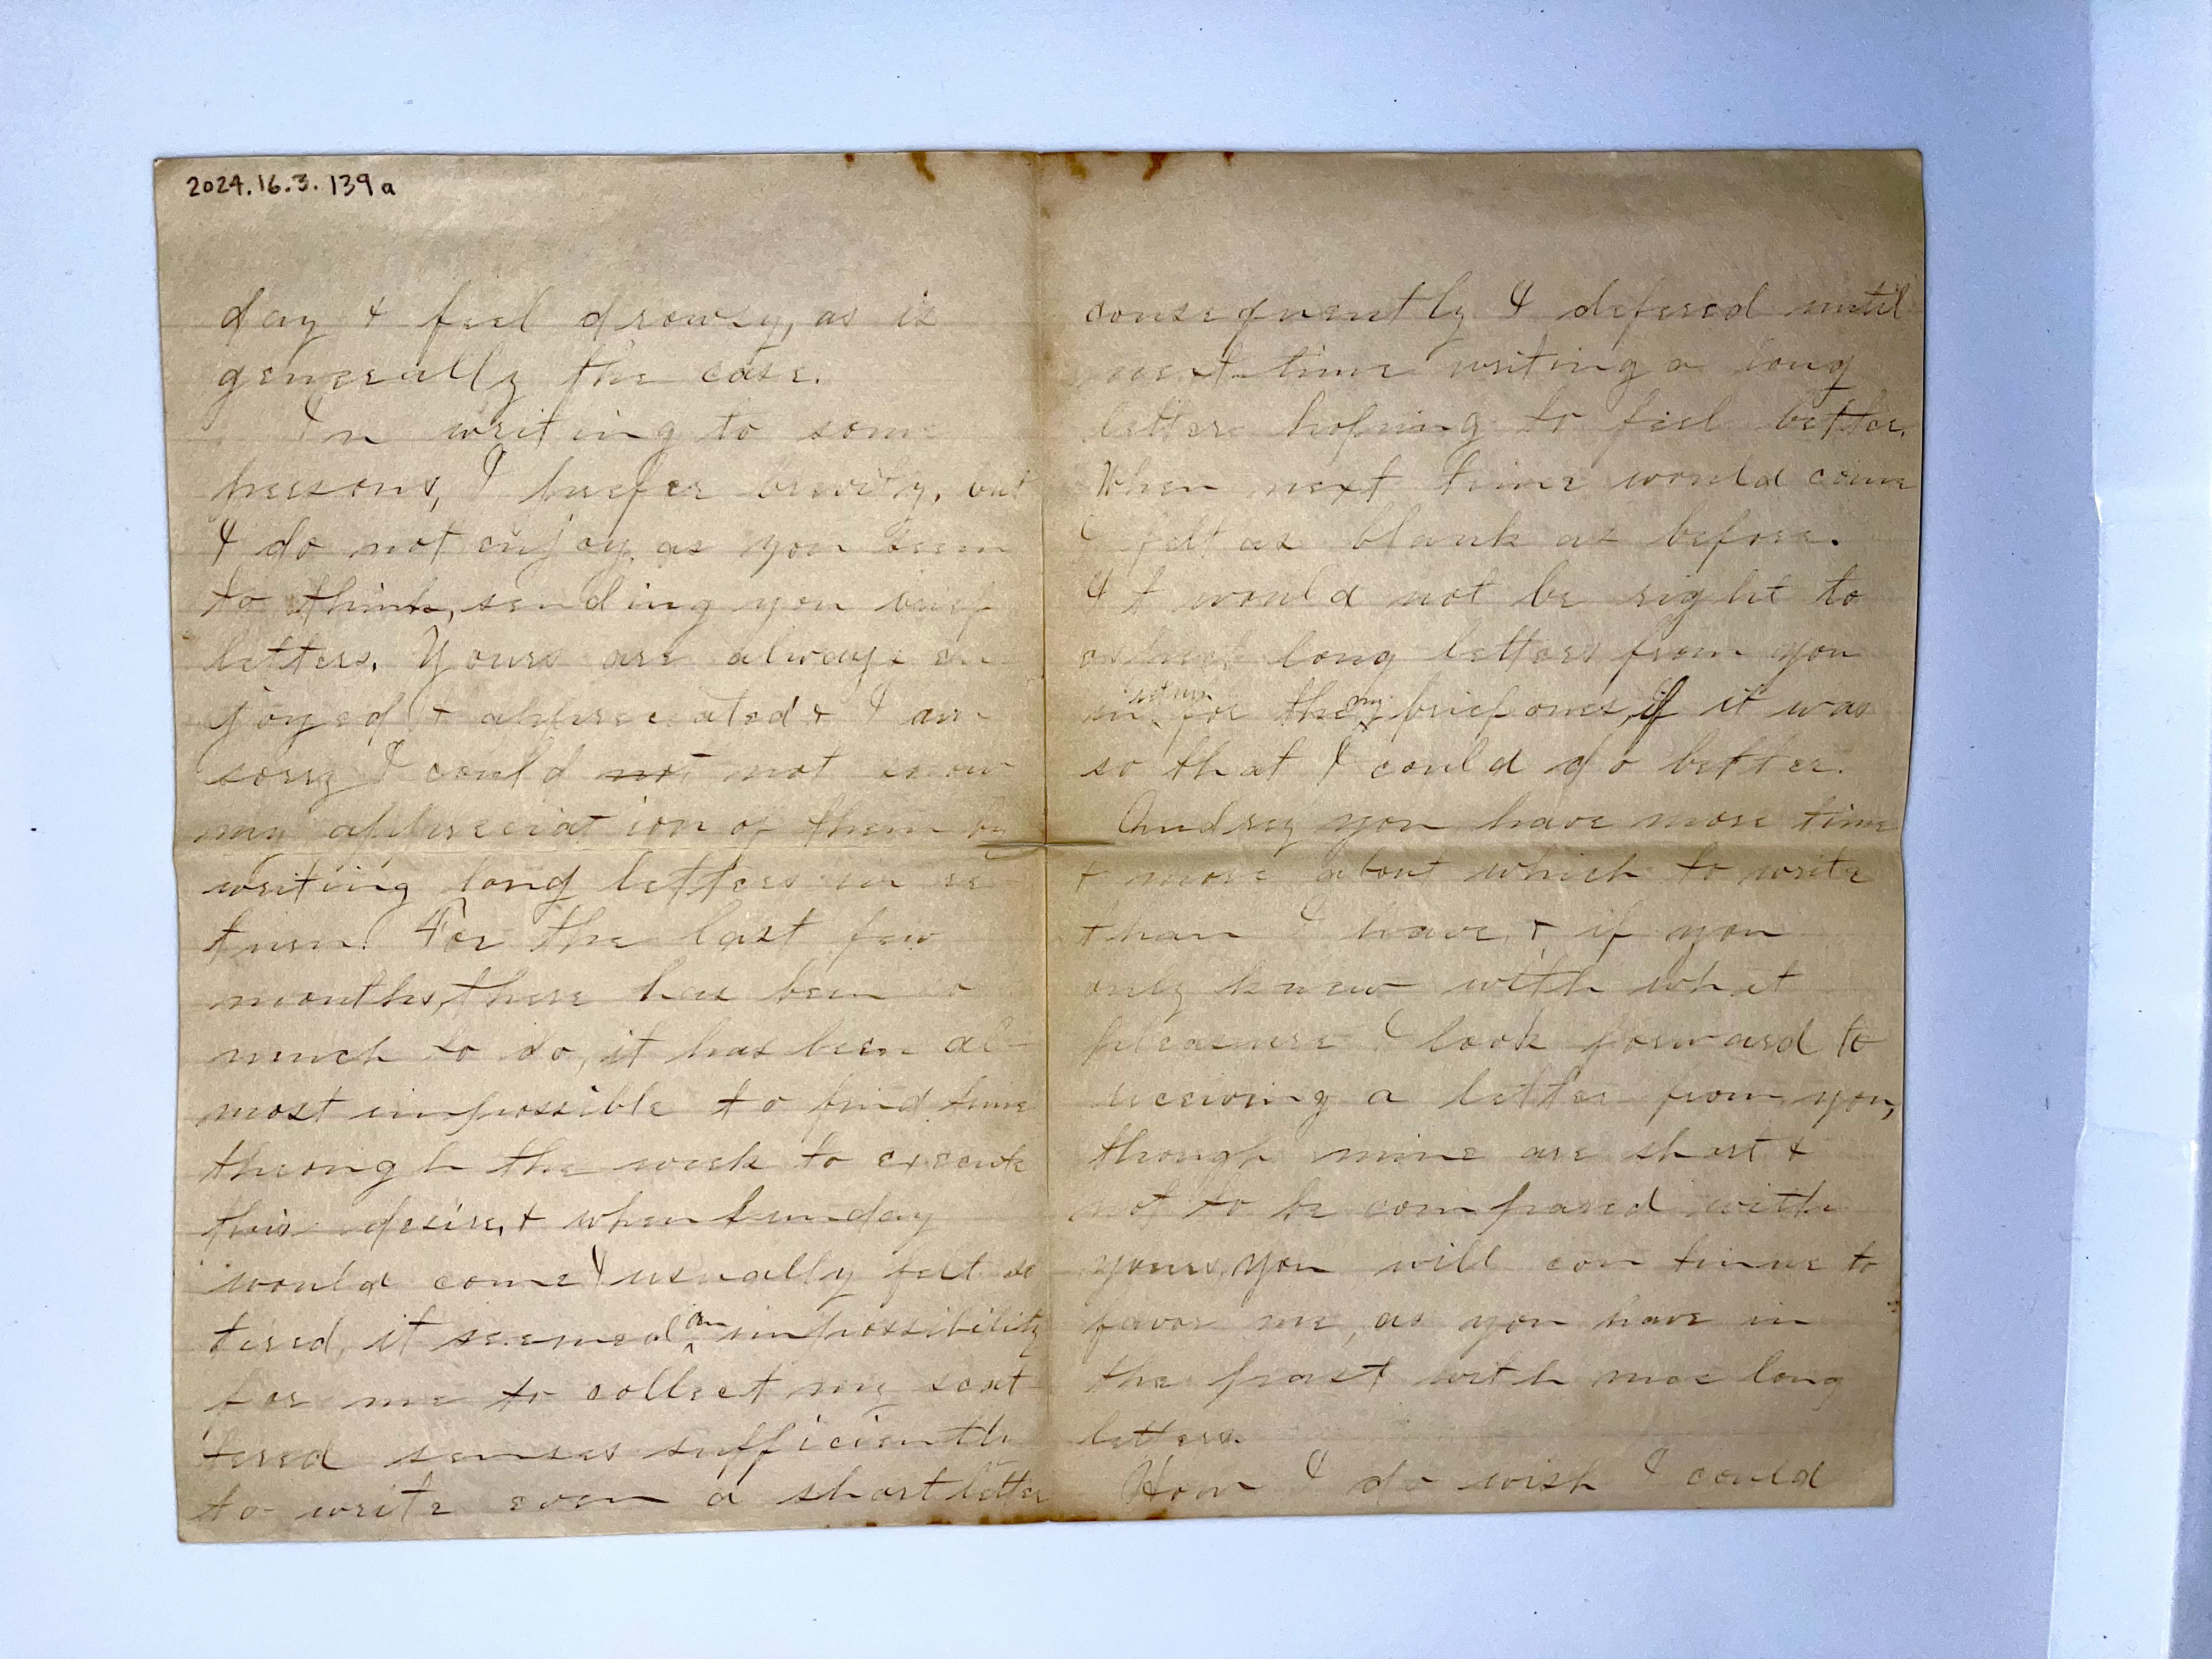 2024.16.3.139a
day & feel drowsy, as is
generally the case.
In writing to some
persons, I prefer brevity, but
I do not enjoy, as you seem
to think, sending you brief
letters. Yours are always en
joyed & appreciated & I am
sorry I could not not show
my appreciation of them by
writing long letters in re
turn. For the last few
months, there has been so
much to do, it has been al-
most impossible to find time
through the week to execute
this desire, & when Sunday
would come I usually felt so
tired, it seemed an impossibility
for me to collect my scat
tered senses sufficiently
to write even a short letter
consequently I defered until
next time writing a long
letter hoping to feel better.
When next time would come
I felt as blank as before.
It would not be right to
long letters from you
in return for my brief ones, if it was
so that I could do better.
And you have more time
& more about which to write
than I have, & if you
only knew with what
pleasure I look forward to
receiving a letter from you,
though mine are short &
not to be compared with
yours, you will continue to
favor me, as you have in
the past with nice long
letters.
How I do wish I could